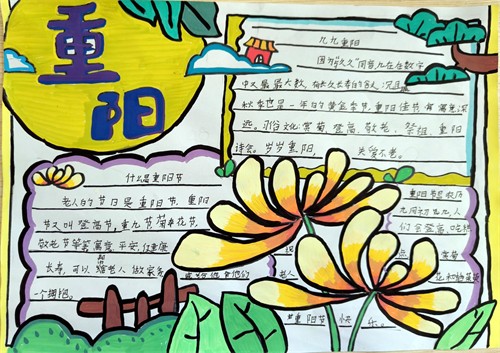 重阳
九九重阳
因为与久久同音九在在数字
中又是最大数,有长久长寿的含人,况且
秋季也是一年的黄金季节,重阳佳节寓意深
远。
俗文化:赏菊、登高、敬老、祭祖、重阳
诗会。岁岁重阳,
关爱不老。
什么是重阳节
老人的节日是重阳节,重阳
节又叫登高节,重九节菊花节,
敬老节等寓意平安,健康
长寿,可以帮老人做家务
一个拥抱。
重阳节是农历
九月初九,人
们会登高,吃糕
点
赏菊
老人
花和插茱萸
重阳节快乐。